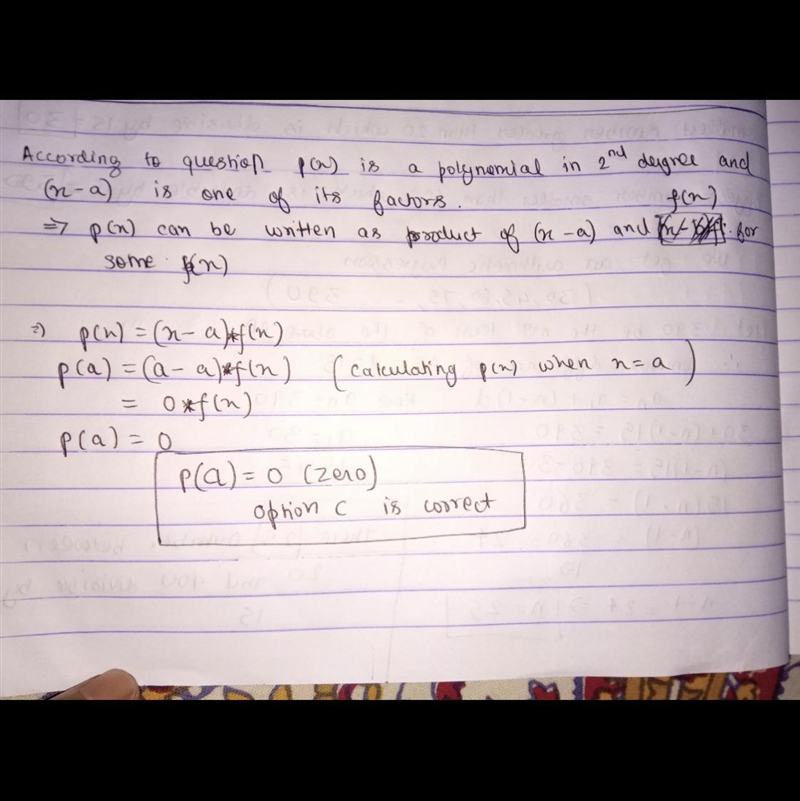 According to question p(x) is a polynomial in 2nd degree and
(x-a) is one of its factors. f(x)
⇒ p(x) can be written as product of (x-a) and for
some f(x)
⇒ p(x) = (x-a)*f(x)
p(a) = (a-a)*f(x) (calculating p(x) when x=a)
= 0*f(x)
p(a) = 0
p(a) = 0 (zero)
option C is correct